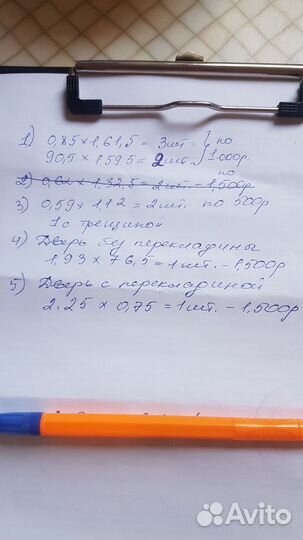 1) 0,85 х 1,61,5 = 3 шт. } по
90,5 х 1.59 5 = 2 шт. } 1.000р.
2) 0,62 х 1,32,5 = 2 шт. = по 1,500р
3) 0,59 х 1,12 = 2 шт. по 500р
1 с трещиной
4) Дверь без перекладины
1,93 х 76,5 = 1 шт. - 1,500р
5) Дверь с перекладиной
2.25 х 0,75 = 1 шт. - 1.500р
Avito